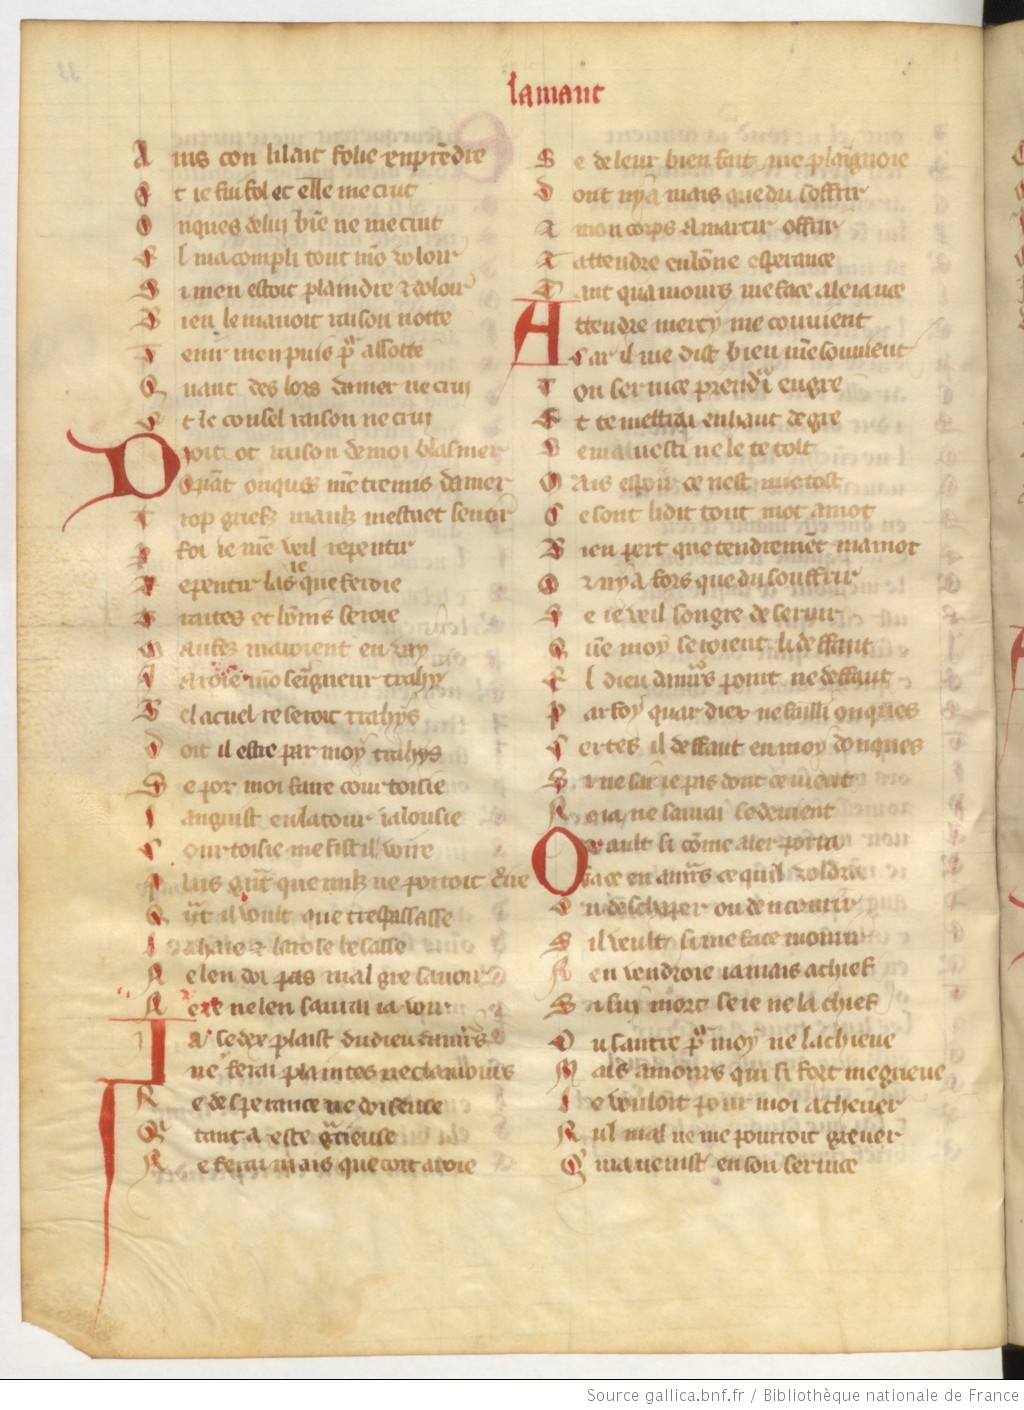 lamant
A mis con li lait folie enprēdre
E t ie fui fol et elle me crut
O nques de luy biē ne me crut
E l macompli tout mō voloir
S i men estoit plaindre & doloir
B ien le mauoit raison notte
T enir men puis pͬ assotte
Q uant des lors damer ne crui
E t le consel raison ne crui
D roit ot raison de moi blasmer
O nq̄s onques mētremis damer
T rop griefz maulz mestuet sentir
P foi ie mē veil repentir
R epentir las ie que feroie
T raites et hōnis seroie
M aufez mauroient enuay
I aroie mō seigneur trahy
B el acuel reseroit trahys
D oit il estre par moy trahys
S e por moi faire courtoisie
L anguist en la tour ialousie
C ourtoisie me fist il voire
P lus grāt que nulz ne porroit croire
Q nt il voult que trespassasse
L a haie & la rose besasse
N e len doi pas mal gre sauoir
N e ie ne len saurai ia voir
I a se dex plaist du dieu damͬs
ne ferai plaintes ne clamours
N e desperance ne doiseuse
Q tant a este gͣcieuse
N e ferai mais que tort aroie
S e de leur bien fait me plaignoie
D ont ny a mais que du soffrir
A mon corps a martir offrir
A attendre en bōne esperance
T ant quamours me face aleiance
A ttendre mercy me couuient
Car il me dist bien mē souuient
T on seruice prendͬ en gre
E t te mettrai en haut degre
S e mauuesti ne le te tolt
M ais espoir ce nest mie tost
C e sont li dit tout mot a mot
B ien pert que tendremēt mamot
O r ny a fors que du souffrir
S e ie veil son gre deseruir
Q uē moy seroient li deffaut
E l dieu damͬs point ne deffaut
P ar foy quar diex ne failli onques
C ertes il deffaut en moy donques
S i ne sai ie pas dont ce vient
N e ia ne saurai se deuient
O r ault si cōme aler porra
face en amͬs ce quil voldra
O u deschaper ou dencourir
S il veult si me face mourir
N en vendroie iamais a chief
S i sui mors se ie ne lachief
O u sautre pͬ moy ne lachieue
M ais amours qui si fort me grieue
S e vouloit pour moi acheuer
N ul mal ne me pourroit greuer
Q mauenist en son seruice
Source gallica.bnf.fr / Bibliothèque nationale de France